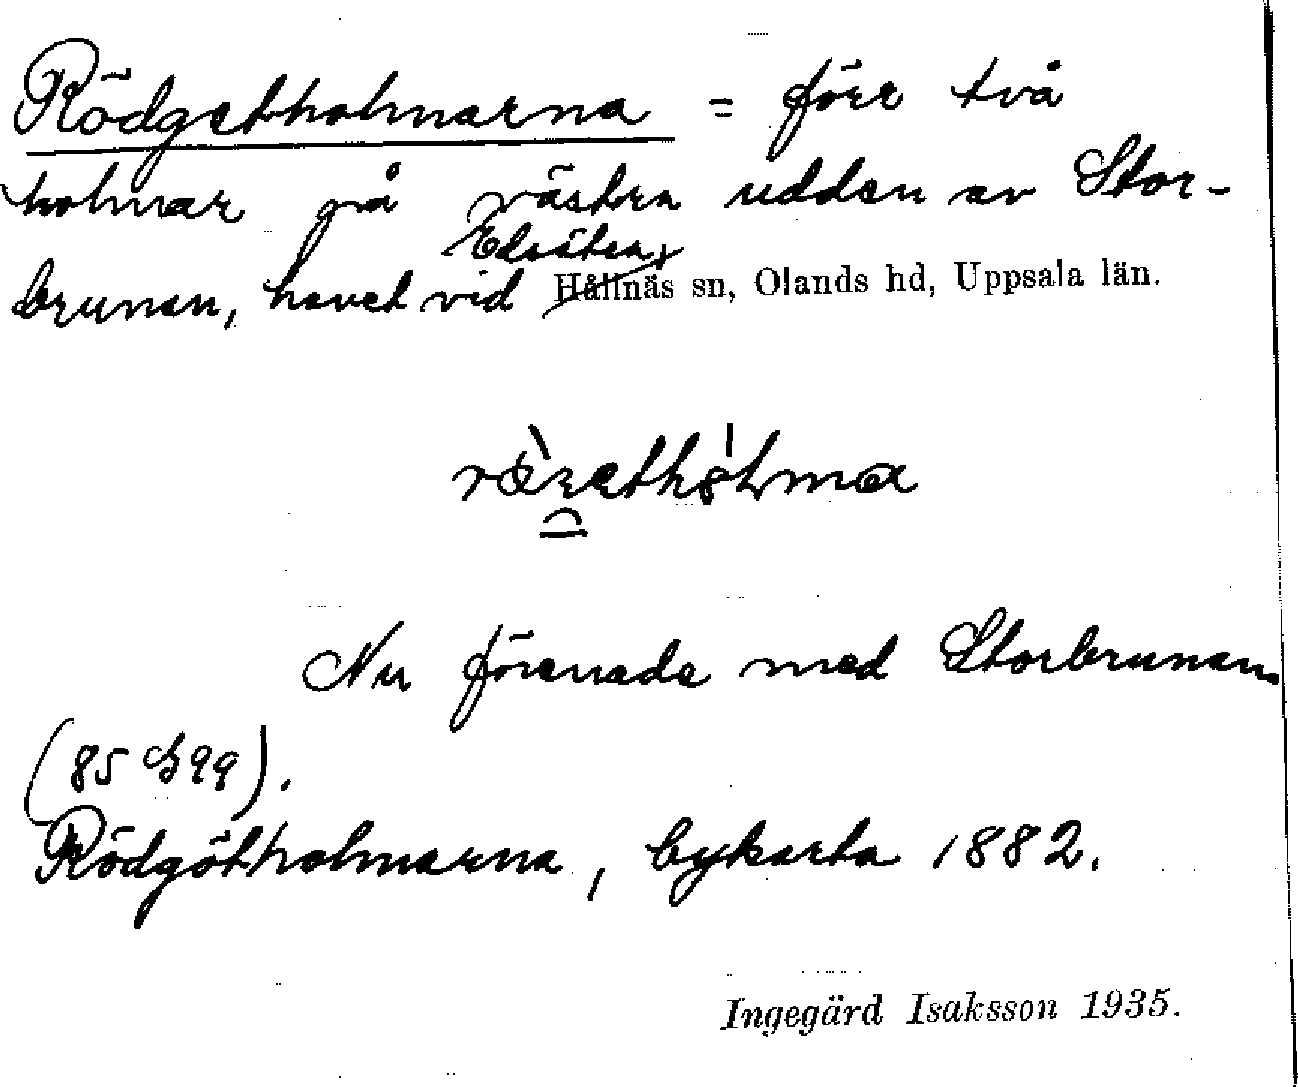 Rödgetholmarna = förr två
holmar på västra udden av Stor-
brunan, havet vid Edsätra, Hållnäs sn, Olands hd, Uppsala län.
Nu förenade med Storbrunan
(85 B 99).
Rödgötholmarna, bykarta 1882.
Ingegärd Isaksson 1935.